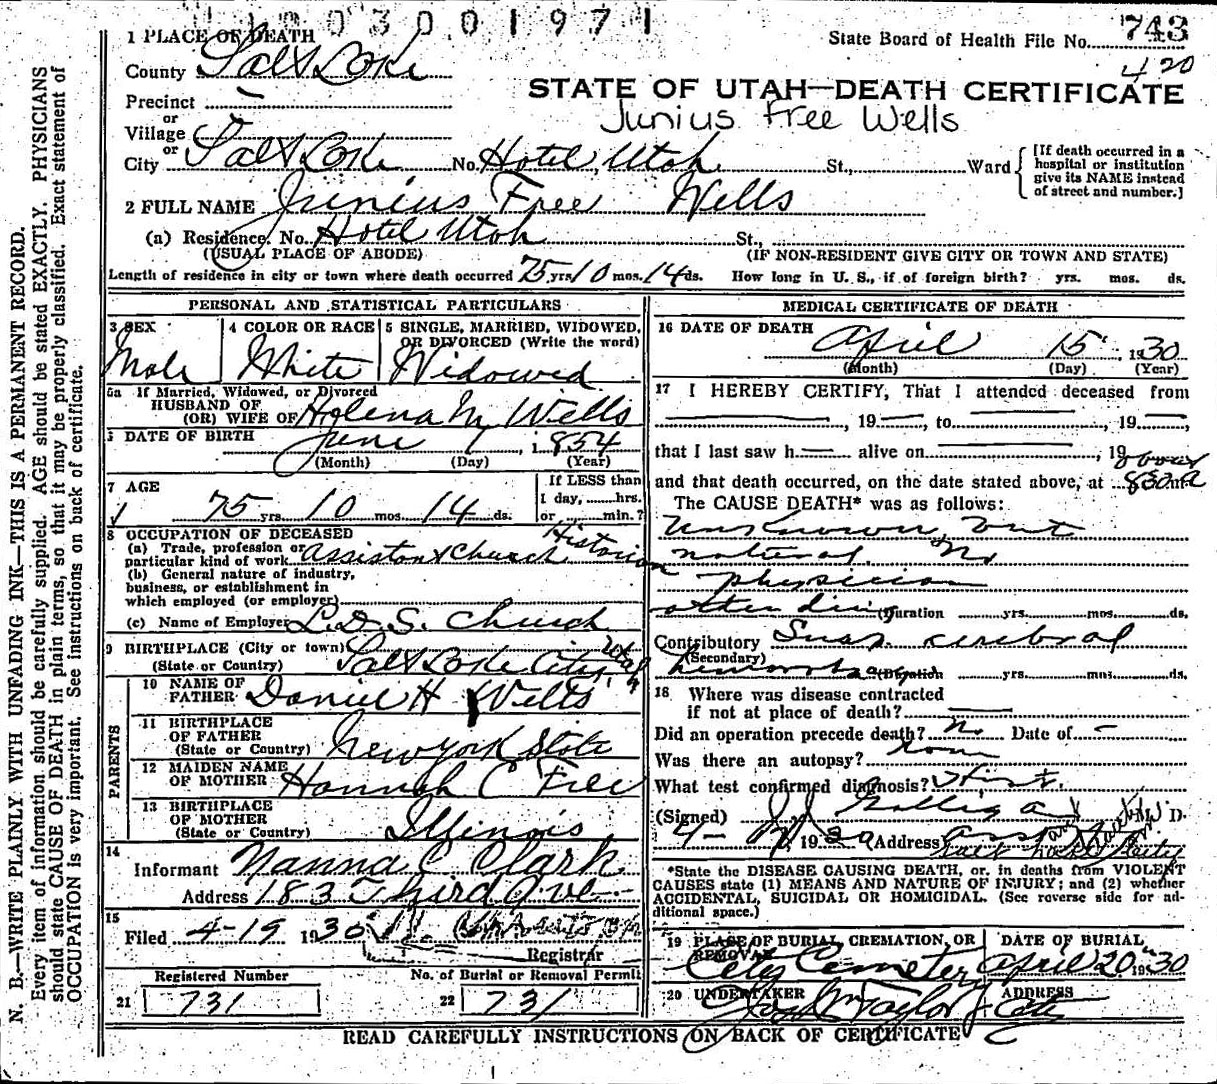 03001971
1 PLACE OF DEATH
State Board of Health File No. 743
County Salt Lake
420
STATE OF UTAH—DEATH CERTIFICATE
Precinct
or
Junius Free Wells
Village
or
City Salt Lake No. Hotel Utah St., Ward
[If death occurred in a hospital or institution give its NAME instead of street and number.]
2 FULL NAME Junius Free Wells
(a) Residence. No. Hotel Utah St.,
(USUAL PLACE OF ABODE) (IF NON-RESIDENT GIVE CITY OR TOWN AND STATE)
Length of residence in city or town where death occurred 75 yrs. 10 mos. 14 ds. How long in U. S., if of foreign birth? yrs. mos. ds.
PERSONAL AND STATISTICAL PARTICULARS
3 SEX 4 COLOR OR RACE 5 SINGLE, MARRIED, WIDOWED, OR DIVORCED (Write the word)
Male White Widowed
5a If Married, Widowed, or Divorced
HUSBAND OF
(OR) WIFE OF Helena M Wells
6 DATE OF BIRTH June 1, 1854
(Month) (Day) (Year)
7 AGE 75 yrs. 10 mos. 14 ds.
If LESS than
1 day, hrs.
or min.?
8 OCCUPATION OF DECEASED
(a) Trade, profession or
particular kind of work Assistant Church Historian
(b) General nature of industry,
business, or establishment in
which employed (or employer)
(c) Name of Employer L. D. S. Church
9 BIRTHPLACE (City or town)
(State or Country) Salt Lake City, Utah
PARENTS
10 NAME OF
FATHER Daniel H Wells
11 BIRTHPLACE
OF FATHER
(State or Country) New York State
12 MAIDEN NAME
OF MOTHER Hannah C Free
13 BIRTHPLACE
OF MOTHER
(State or Country) Illinois
14
Informant Nanna C Clark
Address 183 Third Ave
15
Filed 4-19 1930
Registrar
Registered Number No. of Burial or Removal Permit
21 731 22 731
MEDICAL CERTIFICATE OF DEATH
16 DATE OF DEATH April 15 1930
(Month) (Day) (Year)
17 I HEREBY CERTIFY, That I attended deceased from
, 19 , to , 19 ,
that I last saw h alive on , 19
about
and that death occurred, on the date stated above, at 830 m. a
The CAUSE DEATH* was as follows:
Unknown, but
natural. No
physician
attending (Duration yrs. mos. ds.
Contributory Susp. cerebral
(Secondary)
hemorrhage (Duration yrs. mos. ds.
18 Where was disease contracted
if not at place of death?
Did an operation precede death? no Date of
Was there an autopsy? none
What test confirmed diagnosis? Hist.
(Signed) M. D.
1930 Address
Salt Lake City
*State the DISEASE CAUSING DEATH, or, in deaths from VIOLENT
CAUSES state (1) MEANS AND NATURE OF INJURY; and (2) whether
ACCIDENTAL, SUICIDAL OR HOMICIDAL. (See reverse side for ad-
ditional space.)
19 PLACE OF BURIAL, CREMATION, OR REMOVAL DATE OF BURIAL
City Cemetery April 20 1930
20 UNDERTAKER ADDRESS
Taylor
READ CAREFULLY INSTRUCTIONS ON BACK OF CERTIFICATE
N. B.—WRITE PLAINLY WITH UNFADING INK—THIS IS A PERMANENT RECORD.
Every item of information should be carefully supplied. AGE should be stated EXACTLY. PHYSICIANS
should state CAUSE OF DEATH in plain terms, so that it may be properly classified. Exact statement of
OCCUPATION is very important. See instructions on back of certificate.